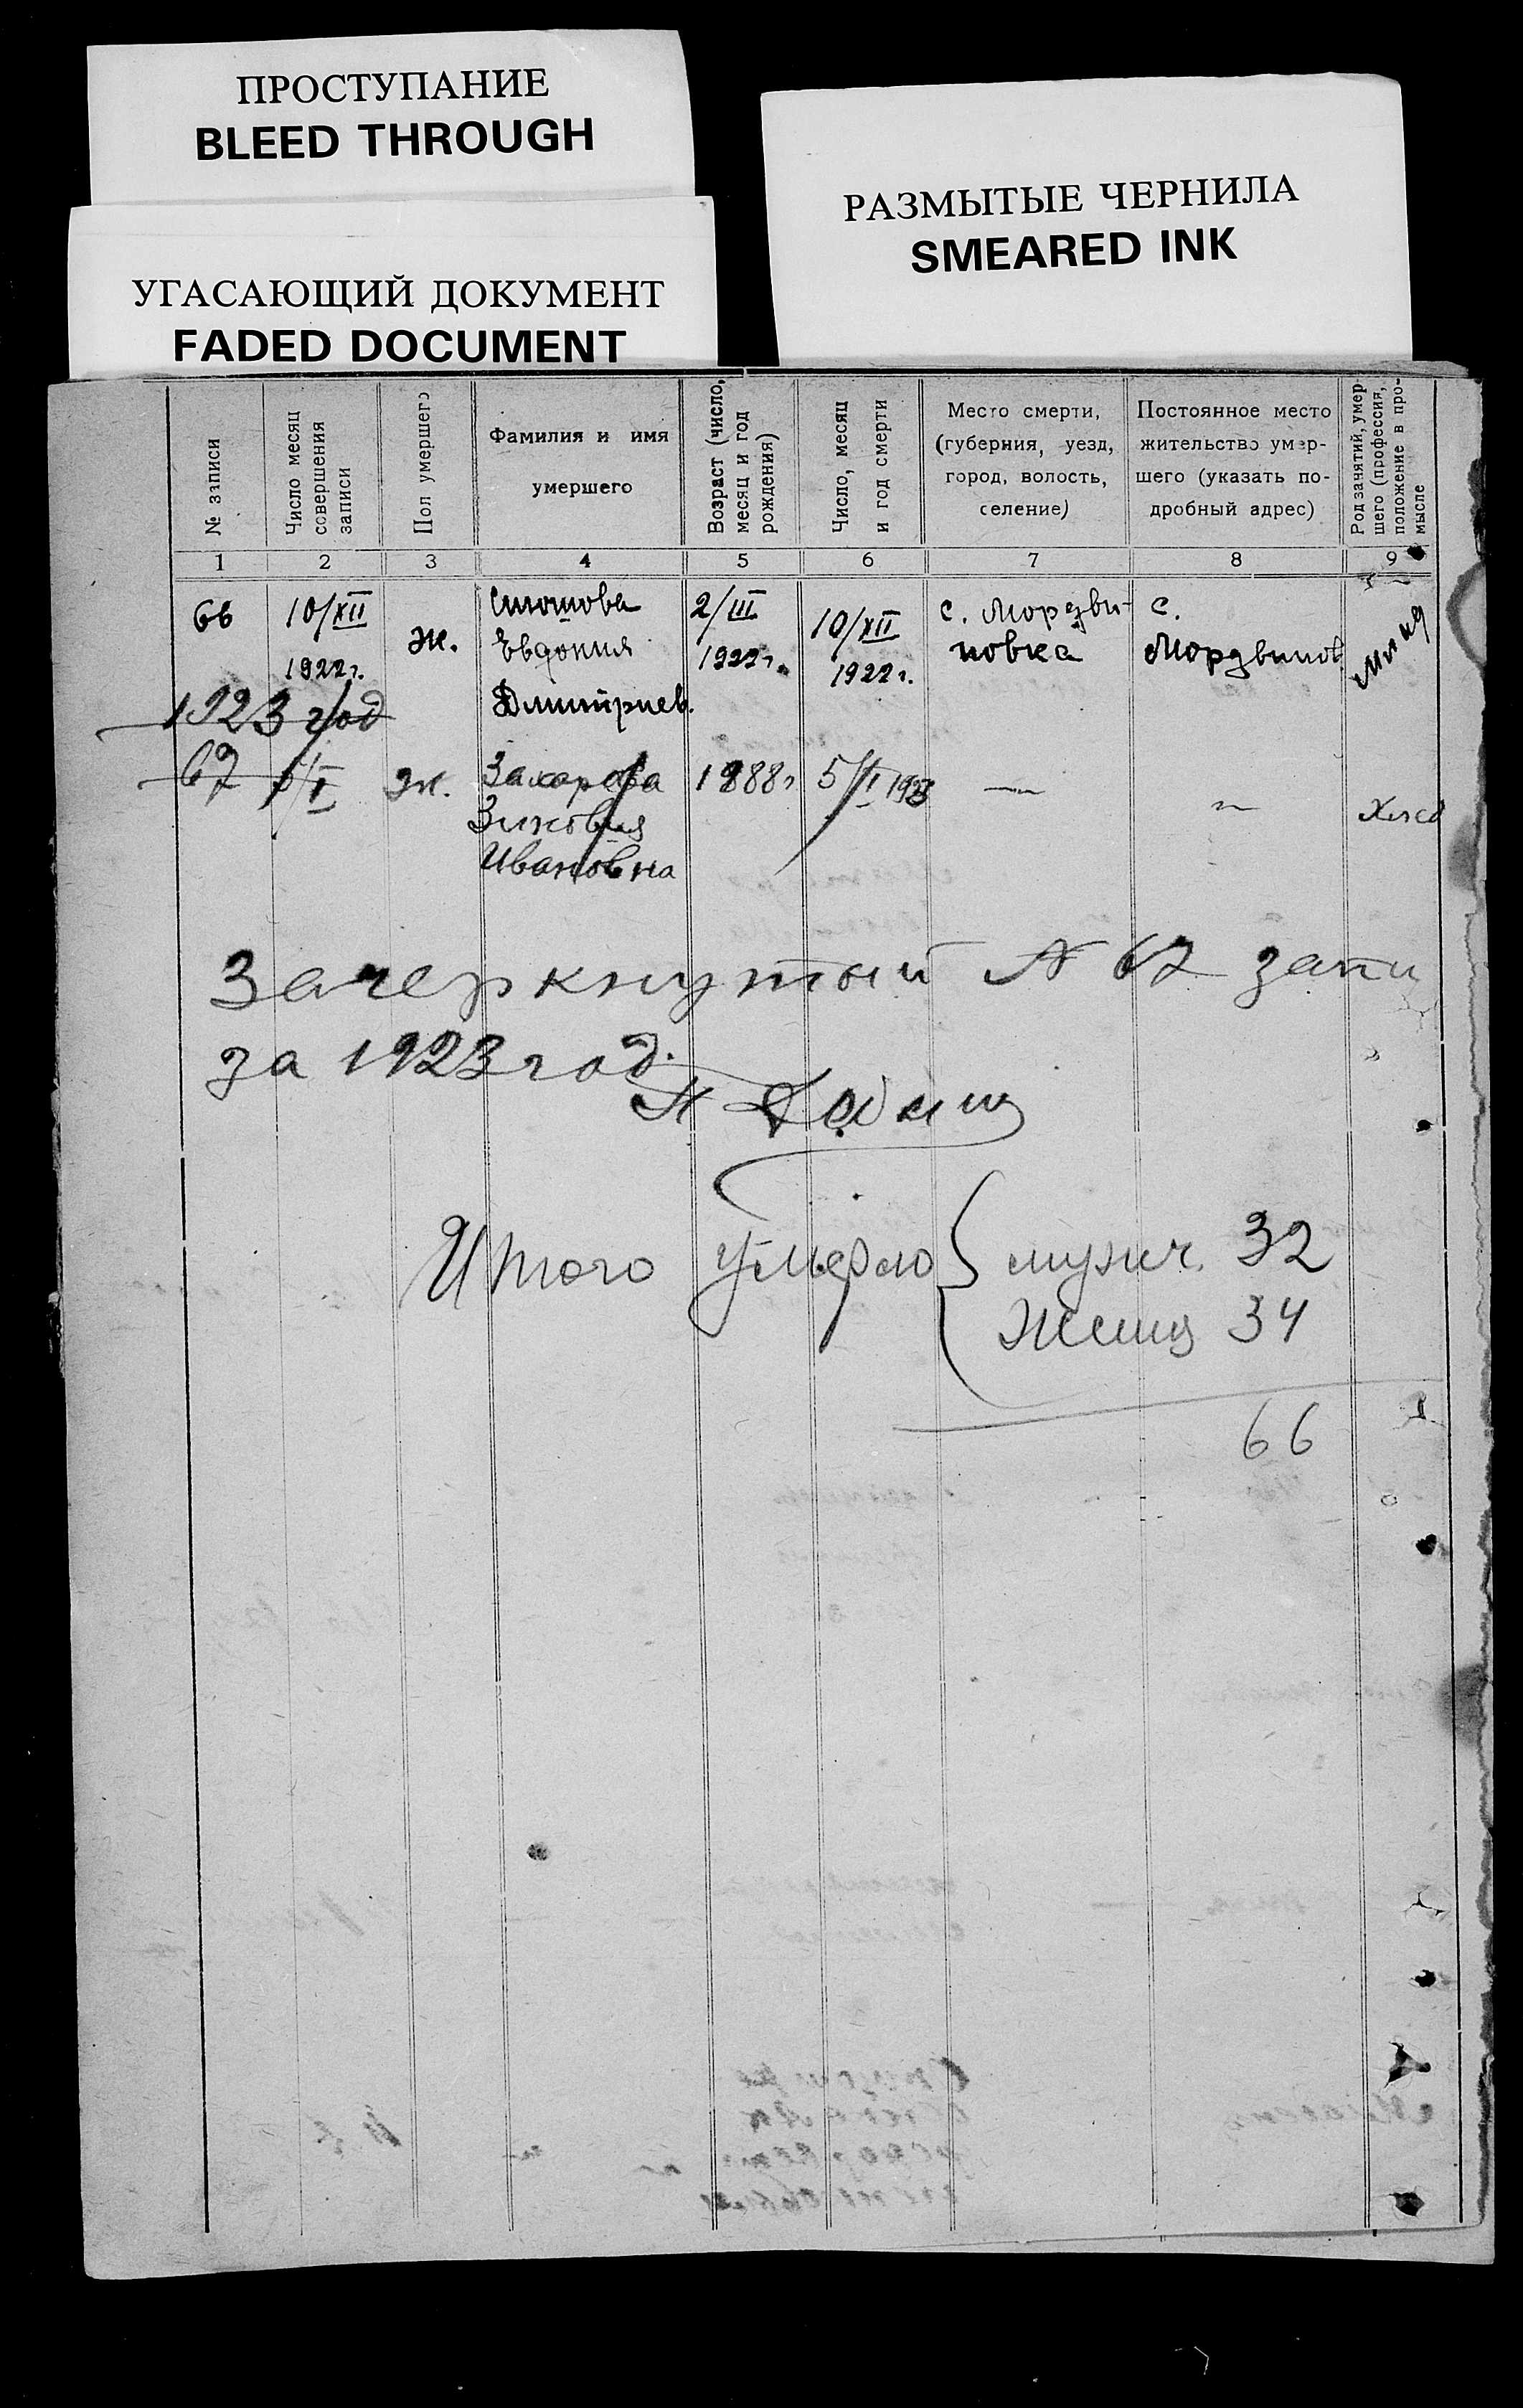 ПРОСТУПАНИЕ
BLEED THROUGH
РАЗМЫТЫЕ ЧЕРНИЛА
SMEARED INK
УГАСАЮЩИЙ ДОКУМЕНТ
FADED DOCUMENT
№ записи
Число месяц
совершения
записи
Пол умершего
Фамилия и имя
умершего
Возраст (число,
месяц и год
рождения)
Число, месяц
и год смерти
Место смерти,
(губерния, уезд,
город, волость,
селение)
Постоянное место
жительство умер-
шего (указать по-
дробный адрес)
Род занятий, умер-
шего (профессия,
положение в про-
мысле
1 2 3 4 5 6 7 8 9
66 10/XII 1922г. ж.
Евдокия
Дмитриев.
2/III
1922г.
10/XII
1922г.
с. Мордви-
новка
с.
Мордвинов
1923 год
67 6/I ж. Захарова 1888г 5/I 1923
Зиновия
Ивановна
Зачеркнутый № 67 запи
за 1923 год.
Итого умерло { мужч. 32
Женщ 34
66